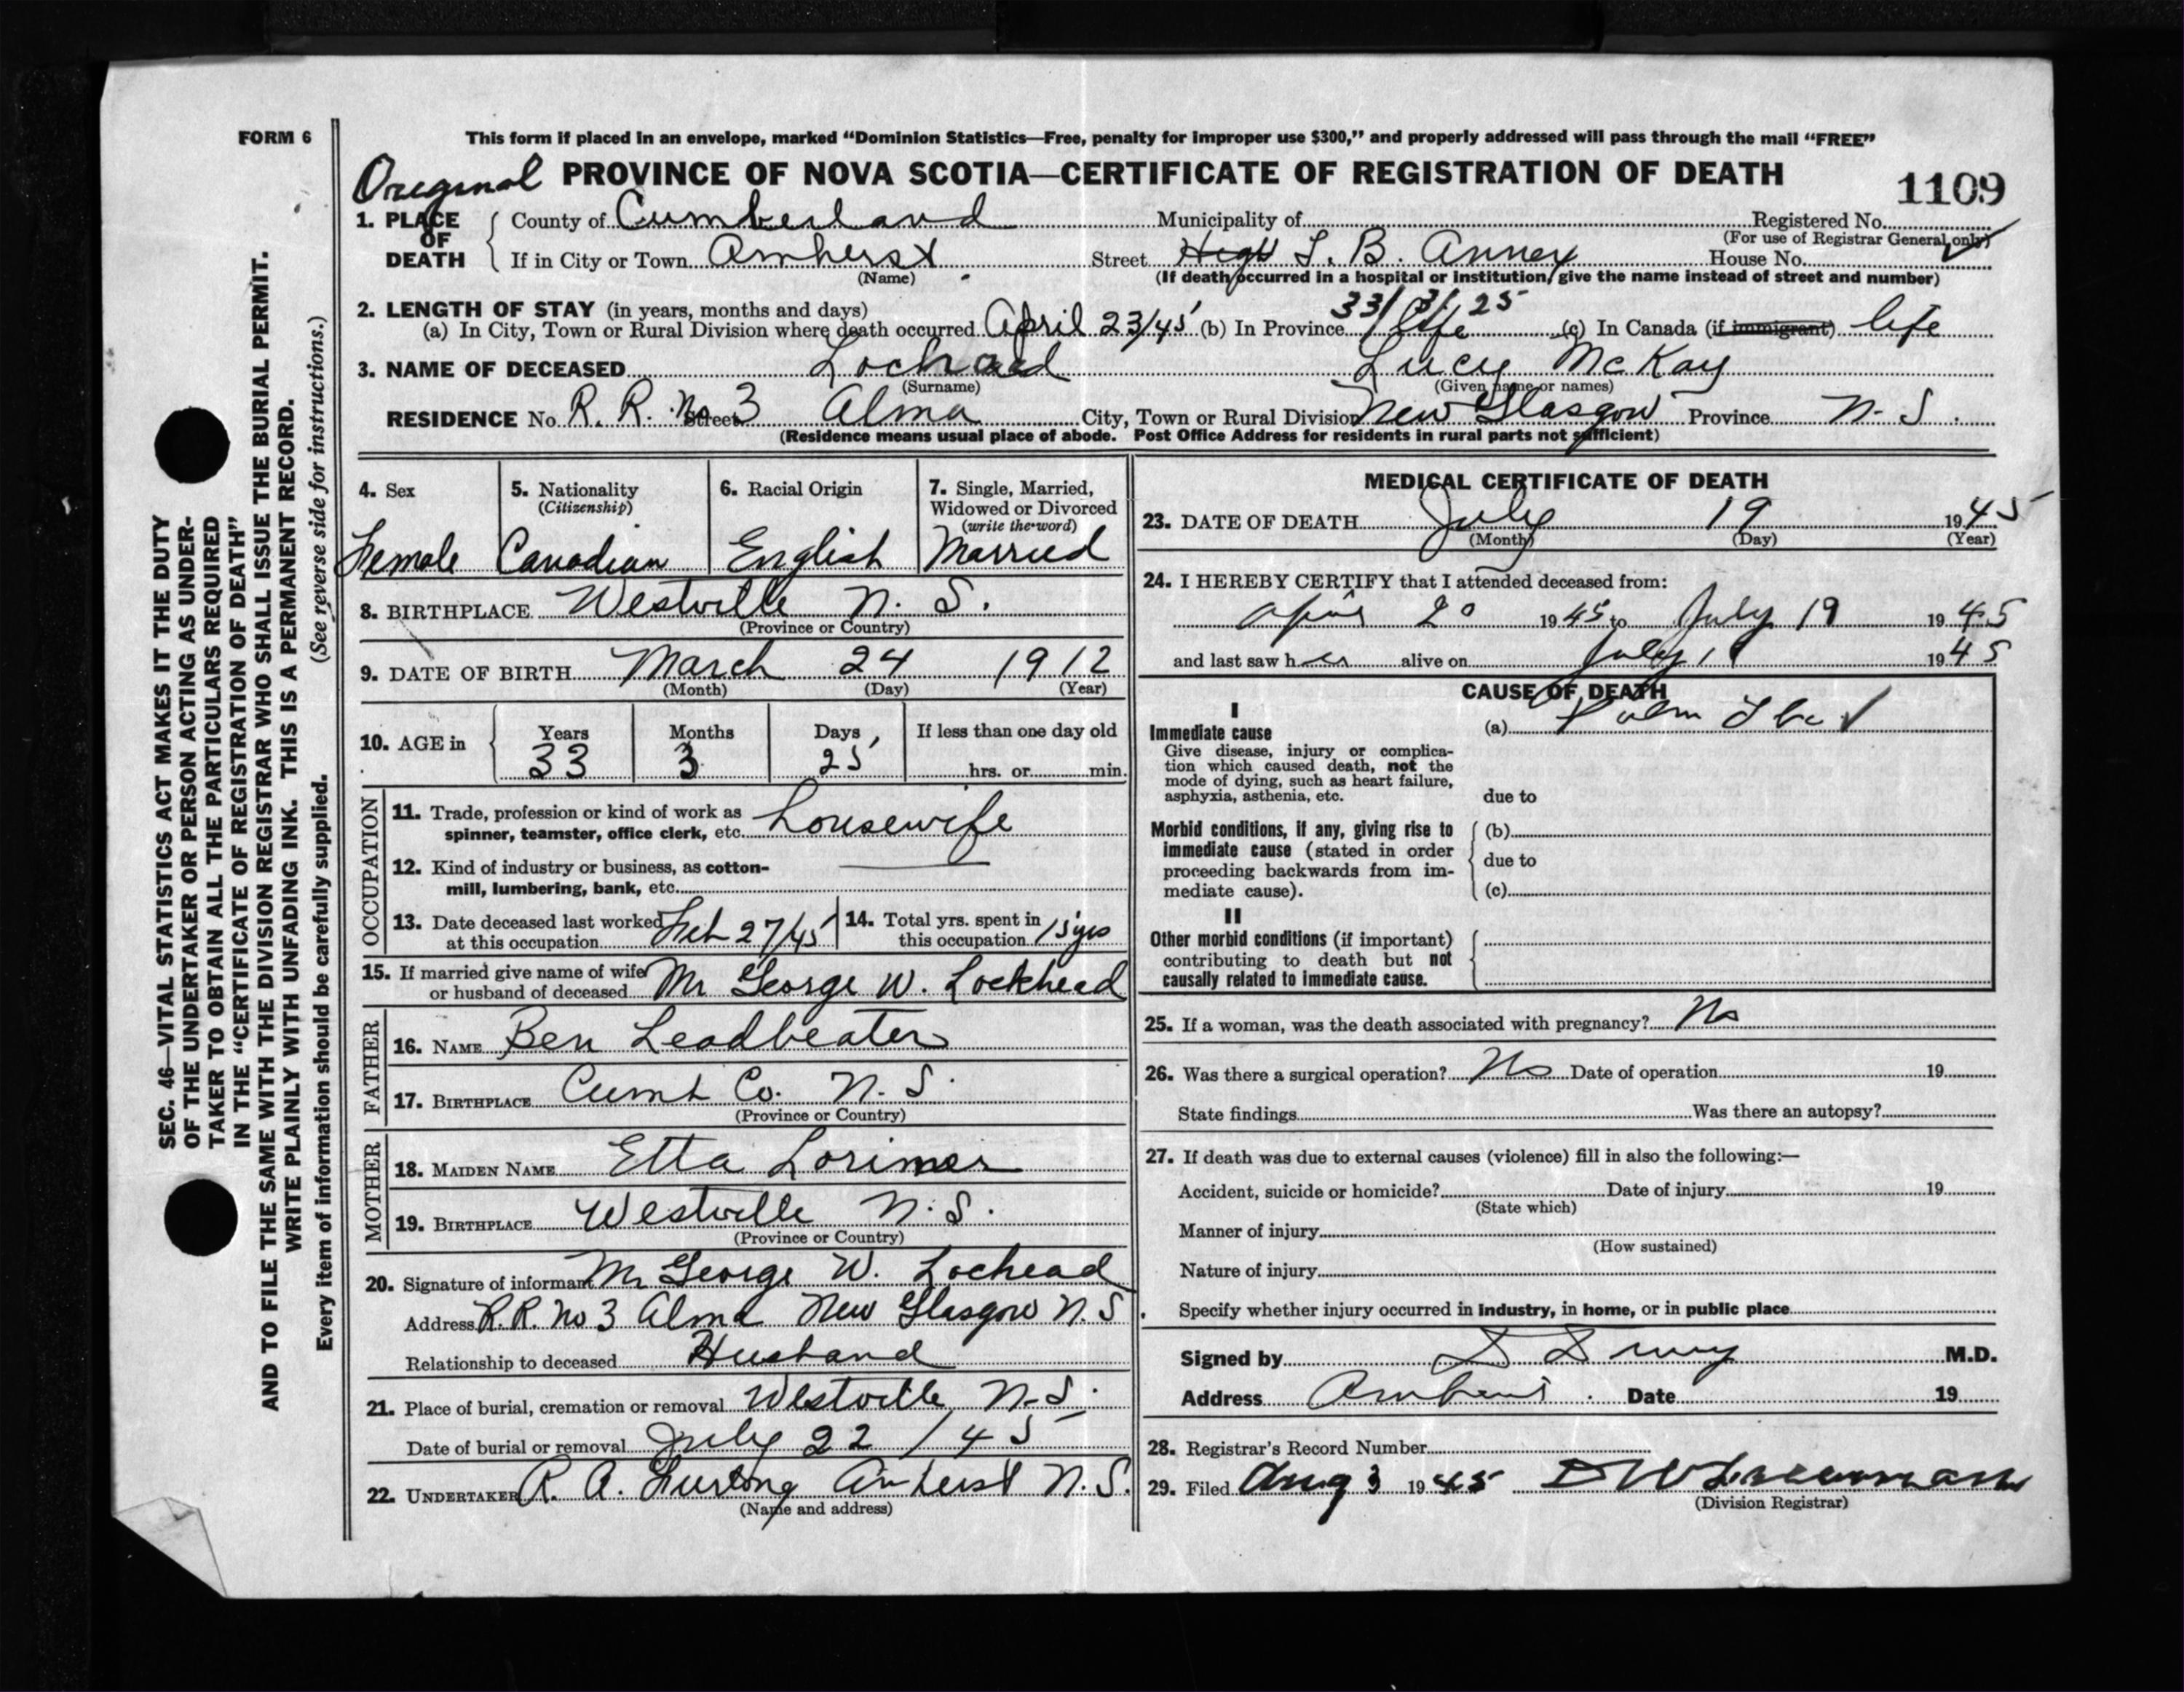 FORM 6
This form if placed in an envelope, marked “Dominion Statistics—Free, penalty for improper use $300,” and properly addressed will pass through the mail “FREE”
Original PROVINCE OF NOVA SCOTIA—CERTIFICATE OF REGISTRATION OF DEATH
1109
1. PLACE OF DEATH { County of Cumberland Municipality of Registered No.
(For use of Registrar General only)
If in City or Town Amherst Street High T. B. Annex House No.
(Name) (If death occurred in a hospital or institution, give the name instead of street and number)
2. LENGTH OF STAY (in years, months and days) 33/ 3/ 25
(a) In City, Town or Rural Division where death occurred April 23/45 (b) In Province life (c) In Canada (if immigrant) life
3. NAME OF DECEASED Lochead Lucy McKay
(Surname) (Given name or names)
RESIDENCE No. R. R. No 3 Street Alma City, Town or Rural Division New Glasgow Province N. S.
(Residence means usual place of abode. Post Office Address for residents in rural parts not sufficient)
4. Sex Female
5. Nationality (Citizenship) Canadian
6. Racial Origin English
7. Single, Married, Widowed or Divorced (write the word) Married
8. BIRTHPLACE Westville N. S.
(Province or Country)
9. DATE OF BIRTH March 24 1912
(Month) (Day) (Year)
10. AGE in { Years 33 Months 3 Days 25 If less than one day old
hrs. or min.
OCCUPATION
11. Trade, profession or kind of work as
spinner, teamster, office clerk, etc. housewife
12. Kind of industry or business, as cotton-
mill, lumbering, bank, etc.
13. Date deceased last worked
at this occupation Feb 27/45
14. Total yrs. spent in
this occupation 15 yrs
15. If married give name of wife
or husband of deceased Mr George W. Lockhead
FATHER
16. NAME Ben Leadbeater
17. BIRTHPLACE Cumb Co. N. S.
(Province or Country)
MOTHER
18. MAIDEN NAME Etta Lorimer
19. BIRTHPLACE Westville N. S.
(Province or Country)
20. Signature of informant Mr George W. Lochead
Address R. R. No 3 Alma New Glasgow N. S.
Relationship to deceased Husband
21. Place of burial, cremation or removal Westville N. S.
Date of burial or removal July 22 / 45
22. UNDERTAKER R. A. Furlong Amherst N. S.
(Name and address)
MEDICAL CERTIFICATE OF DEATH
23. DATE OF DEATH July 19 1945
(Month) (Day) (Year)
24. I HEREBY CERTIFY that I attended deceased from:
April 20 1945 to July 19 1945
and last saw her alive on July 1945
CAUSE OF DEATH
I
Immediate cause (a) Pulm Tbc ✓
Give disease, injury or complica-
tion which caused death, not the
mode of dying, such as heart failure,
asphyxia, asthenia, etc. due to
Morbid conditions, if any, giving rise to (b)
immediate cause (stated in order
proceeding backwards from im- due to
mediate cause). (c)
II
Other morbid conditions (if important)
contributing to death but not
causally related to immediate cause.
25. If a woman, was the death associated with pregnancy? No
26. Was there a surgical operation? No Date of operation 19
State findings Was there an autopsy?
27. If death was due to external causes (violence) fill in also the following:—
Accident, suicide or homicide? Date of injury 19
(State which)
Manner of injury
(How sustained)
Nature of injury
Specify whether injury occurred in industry, in home, or in public place
Signed by M.D.
Address Amherst. Date 19
28. Registrar's Record Number
29. Filed Aug 3 1945
(Division Registrar)
SEC. 46—VITAL STATISTICS ACT MAKES IT THE DUTY
OF THE UNDERTAKER OR PERSON ACTING AS UNDER-
TAKER TO OBTAIN ALL THE PARTICULARS REQUIRED
IN THE “CERTIFICATE OF REGISTRATION OF DEATH”
AND TO FILE THE SAME WITH THE DIVISION REGISTRAR WHO SHALL ISSUE THE BURIAL PERMIT.
WRITE PLAINLY WITH UNFADING INK. THIS IS A PERMANENT RECORD.
Every item of information should be carefully supplied. (See reverse side for instructions.)